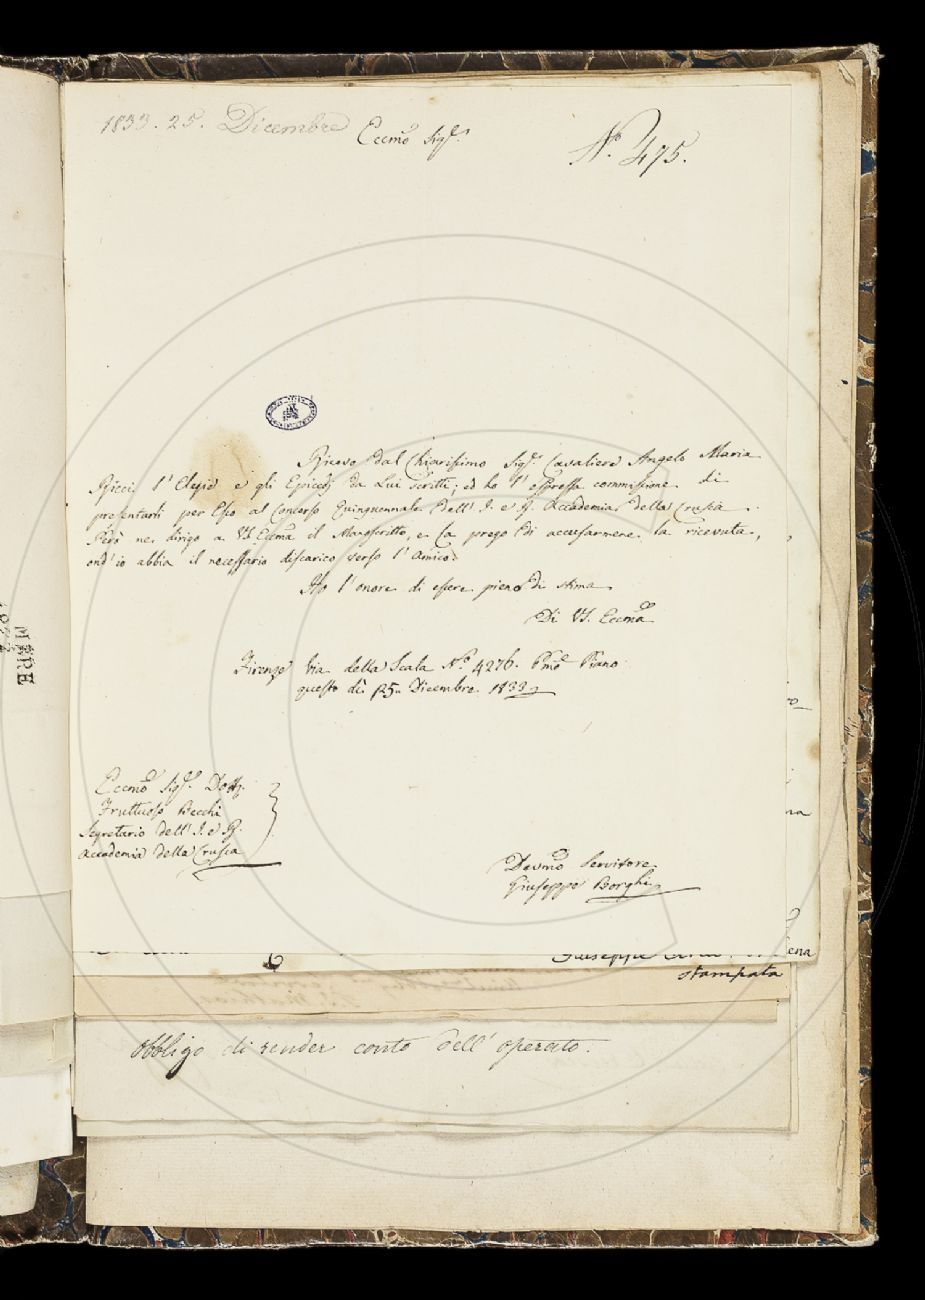 1833. 25. Dicembre
Eccmo Sigr.
N.° 475.
Ricevo dal Chiarissimo Sigr. Cavaliere Angelo Maria
Ricci l'Elegie e gli Epicedj da Lui scritti; ed ho l'espressa commissione di
presentarli per Esso al Concorso Quinquennale dell'I. e R. Accademia della Crusca.
Però ne dirigo a VS. Eccma il Manoscritto, e La prego di accusarmene la ricevuta,
ond'io abbia il necessario discarico verso l'Amico.
Ho l'onore di essere pieno di stima
Di VS. Eccma
Firenze Via della Scala N.° 4276. Pmo Piano
questo dì 25 Dicembre 1833
Eccmo Sigr. Dott.
Fruttuoso Becchi
Segretario dell'I. e R.
Accademia della Crusca
Devmo Servitore
Giuseppe Borghi
Giuseppe
stampata
obbligo di render conto dell'operato.